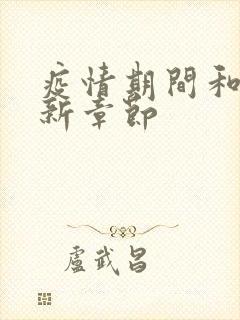 疫情期間和
新章節
盧武昌